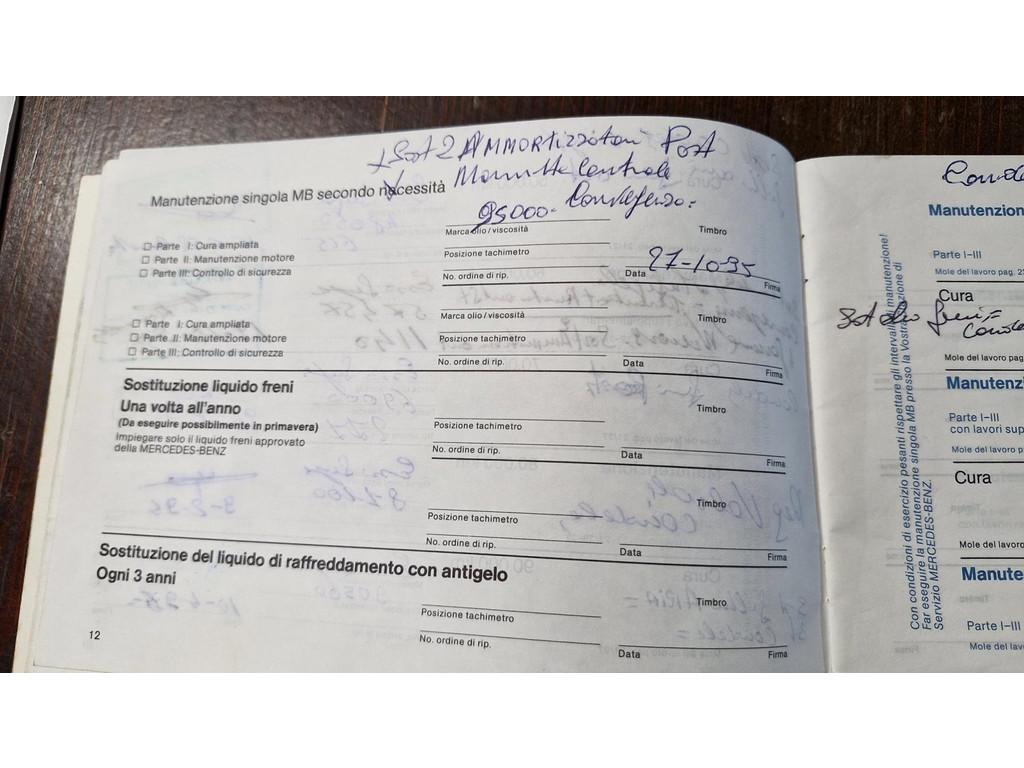 +Sost 2 AMMORTIZZATORI Post
Manutenzione singola MB secondo necessità
95000.
Marca olio/viscosità
Timbro
Parte I: Cura ampliata
Parte II: Manutenzione motore
Parte III: Controllo di sicurezza
Posizione tachimetro
No. ordine di rip.
Data
27-10-95
Firma
Marca olio/viscosità
Timbro
Parte I: Cura ampliata
Parte II: Manutenzione motore
Parte III: Controllo di sicurezza
Posizione tachimetro
No. ordine di rip.
Data
Firma
Sostituzione liquido freni
Una volta all'anno
(Da eseguire possibilmente in primavera)
Impiegare solo il liquido freni approvato
della MERCEDES-BENZ
Timbro
Posizione tachimetro
No. ordine di rip.
Data
Firma
Timbro
Posizione tachimetro
No. ordine di rip.
Data
Firma
Sostituzione del liquido di raffreddamento con antigelo
Ogni 3 anni
Timbro
Posizione tachimetro
No. ordine di rip.
Data
Firma
12
Con condizioni di esercizio pesanti rispettare gli intervalli manutenzione!
Far eseguire la manutenzione singola MB presso la Vostra zione di
Servizio MERCEDES-BENZ.
Manutenzion
Parte I–III
Mole del lavoro pag. 2
Cura
Mole del lavoro pag
Manutenz
Parte I–III
con lavori sup
Mole del lavoro p
Cura
Mole del lavoro
Manute
Parte I–III
Mole del lavor